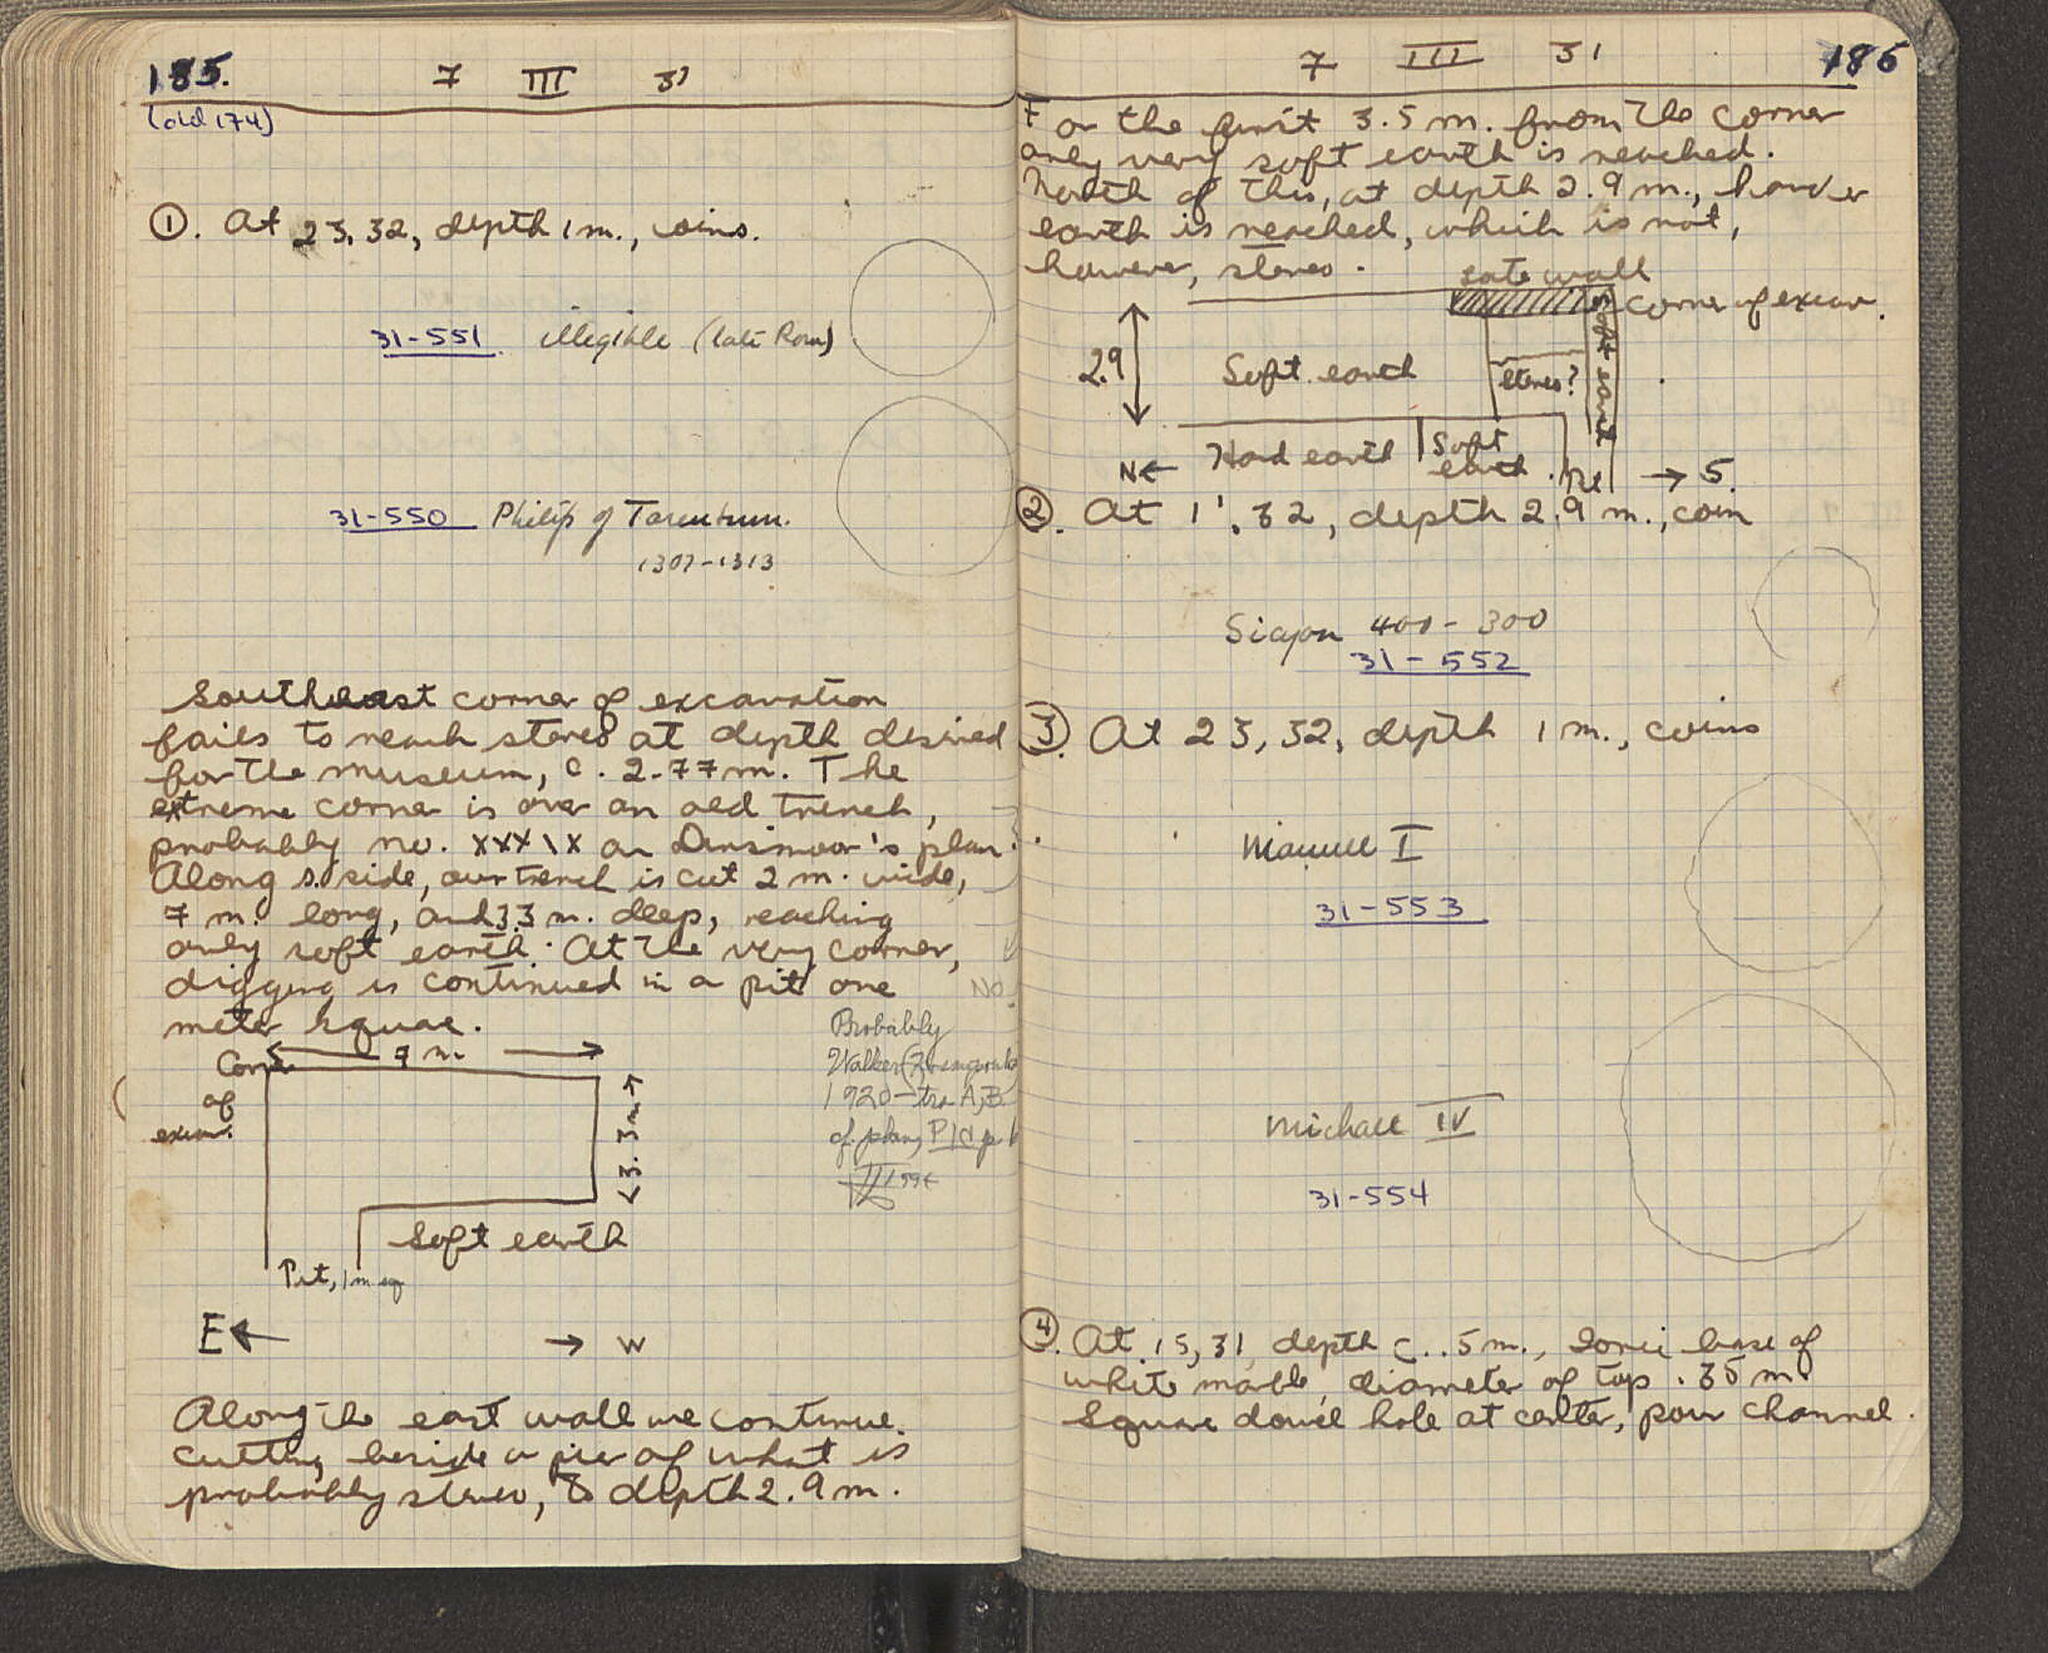 185.
7 III 31
(old 174)
①. At 23, 32, depth 1 m., coins.
31-551 illegible (late Rom)
31-550 Philip of Tarentum.
1307-1313
Southeast corner of excavation
fails to reach stereo at depth desired
for the museum, c. 2.77 m. The
extreme corner is over an old trench,
probably no. XXXIX on Dinsmoor's plan.
Along s. side, our trench is cut 2 m. wide,
7 m. long, and 3.3 m. deep, reaching
only soft earth. At the very corner,
digging is continued in a pit one
meter square.
NO.
Probably
Walker
1920 - trs A, B
cf. plan, p
Corner
of
excav.
7 m.
3.3 m.
Soft earth
Pit, 1 m sq
E ← → W
Along the east wall we continue
cutting beside a pier of what is
probably stereo, to depth 2.9 m.
7 III 31
186
For the first 3.5 m. from the corner
only very soft earth is reached.
North of this, at depth 2.9 m., harder
earth is reached, which is not,
however, stereo.
Late wall
corner of excav.
2.9
Soft earth
Stereo?
Soft earth
Hard earth
Soft
earth
Pit
N ← → S.
②. At 1', 32, depth 2.9 m., coin
Sicyon 400-300
31-552
③. At 23, 32, depth 1 m., coins
Manuel I
31-553
Michael IV
31-554
④. At 15, 31 depth c. .5 m., Ionic base of
white marble, diameter of top .35 m.
Square dowel hole at center, pour channel.